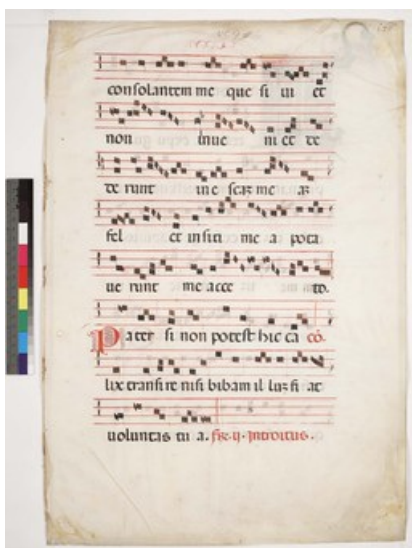 consolantem me que si ui et
non inue ni et de
de runt in e scaz me az
fel et in siti me a pota
ue runt me acce to.
Pater si non potest hic ca cō.
lix transire nisi bibam il luz fi at
uoluntas tu a. introitus.